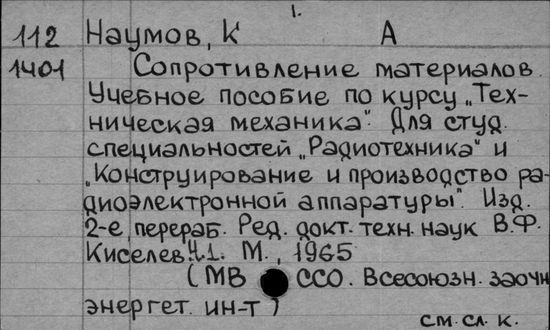 1.
112 Наумов, К А
1401 Сопротивление материалов.
Учебное пособие по курсу „Тех-
ническая механика". Для студ.
специальностей „Радиотехника" и
„Конструирование и производство ра-
диоэлектронной аппаратуры". Изд.
2-е, перераб. Ред. докт. техн. наук В.Ф.
Киселев. Ч.1. М., 1965
(МВ ССО. Всесоюзн. заочн
энергет. ин-т)
см. сл. к.